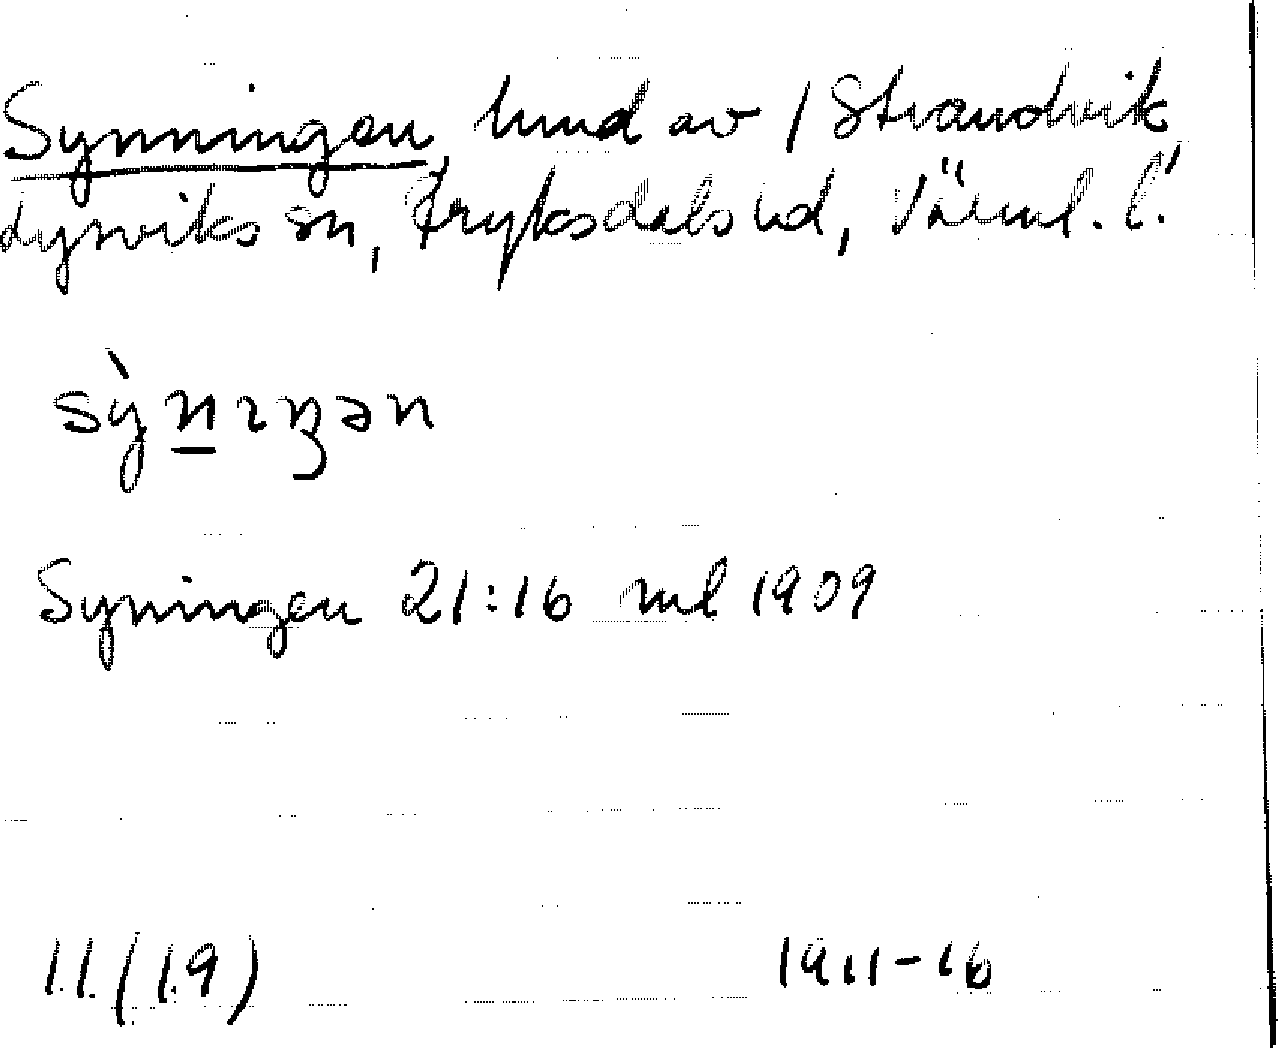 Synningen, hmd av 1 Strandvik,
Lysviks sn, Fryksdals hd, Värml. l.
sỳnıŋən
Syningen 21:16 ml 1909
11 (19) 1911-16